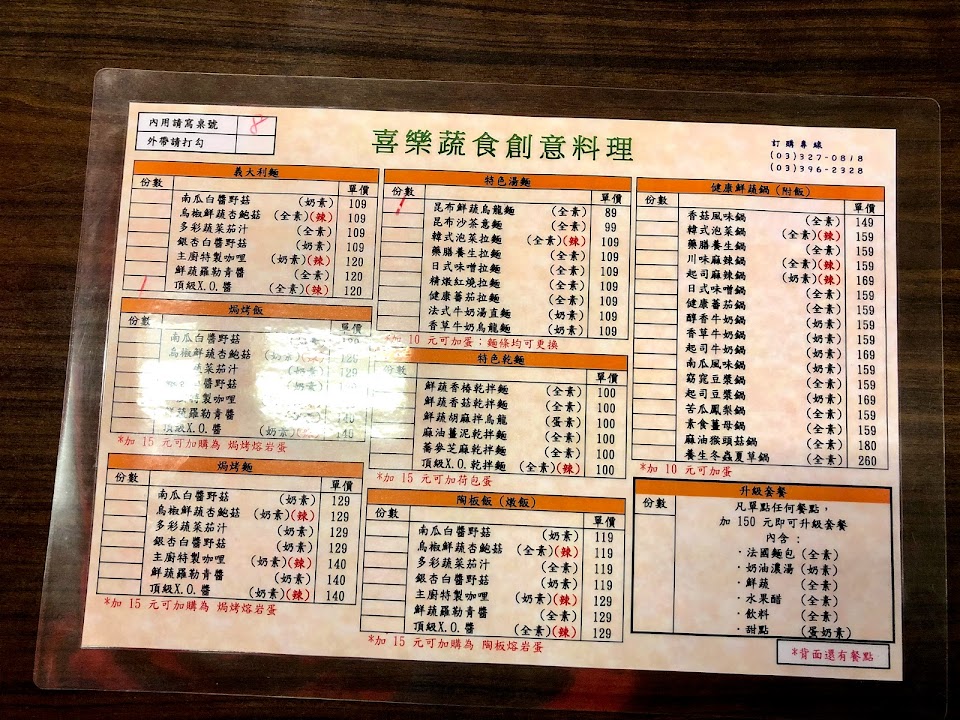 內用請寫桌號 8
外帶請打勾
喜樂蔬食創意料理
訂購專線
(03)327-0818
(03)396-2328
義大利麵
份數 單價
南瓜白醬野菇 (奶素) 109
烏椒鮮蔬杏鮑菇 (全素)(辣) 109
多彩蔬菜茄汁 (全素) 109
銀杏白醬野菇 (奶素) 109
主廚特製咖哩 (奶素)(辣) 120
鮮蔬羅勒青醬 (全素) 120
頂級X.O.醬 (全素)(辣) 120
焗烤飯
份數 單價
南瓜白醬野菇 (奶素)
烏椒鮮蔬杏鮑菇 (奶素)(辣) 129
蔬菜茄汁 (奶素) 129
白醬野菇
特製咖哩
鮮蔬羅勒青醬 140
頂級X.O.醬 (奶素)(辣) 140
*加 15 元可加購為 焗烤熔岩蛋
焗烤麵
份數 單價
南瓜白醬野菇 (奶素) 129
烏椒鮮蔬杏鮑菇 (奶素)(辣) 129
多彩蔬菜茄汁 (奶素) 129
銀杏白醬野菇 (奶素) 129
主廚特製咖哩 (奶素)(辣) 140
鮮蔬羅勒青醬 (奶素) 140
頂級X.O.醬 (奶素)(辣) 140
*加 15 元可加購為 焗烤熔岩蛋
特色湯麵
份數 單價
昆布鮮蔬烏龍麵 (全素) 89
昆布沙茶意麵 (全素) 99
韓式泡菜拉麵 (全素)(辣) 109
藥膳養生拉麵 (全素) 109
日式味噌拉麵 (全素) 109
精燉紅燒拉麵 (全素) 109
健康蕃茄拉麵 (全素) 109
法式牛奶湯直麵 (奶素) 109
香草牛奶烏龍麵 (奶素) 109
*加 10 元可加蛋；麵條均可更換
特色乾麵
份數 單價
鮮蔬香椿乾拌麵 (全素) 100
鮮蔬香菇乾拌麵 (全素) 100
鮮蔬胡麻拌烏龍 (蛋素) 100
麻油薑泥乾拌麵 (全素) 100
蕎麥芝麻乾拌麵 (全素) 100
頂級X.O.乾拌麵 (全素)(辣) 100
*加 15 元可加荷包蛋
陶板飯（燉飯）
份數 單價
南瓜白醬野菇 (奶素) 119
烏椒鮮蔬杏鮑菇 (全素)(辣) 119
多彩蔬菜茄汁 (全素) 119
銀杏白醬野菇 (奶素) 119
主廚特製咖哩 (奶素)(辣) 129
鮮蔬羅勒青醬 (全素) 129
頂級X.O.醬 (全素)(辣) 129
*加 15 元可加購為 陶板熔岩蛋
健康鮮蔬鍋（附飯）
份數 單價
香菇風味鍋 (全素) 149
韓式泡菜鍋 (全素)(辣) 159
藥膳養生鍋 (全素) 159
川味麻辣鍋 (全素)(辣) 159
起司麻辣鍋 (奶素)(辣) 169
日式味噌鍋 (全素) 159
健康蕃茄鍋 (全素) 159
醇香牛奶鍋 (奶素) 159
香草牛奶鍋 (奶素) 159
起司牛奶鍋 (奶素) 169
南瓜風味鍋 (奶素) 159
窈窕豆漿鍋 (全素) 159
起司豆漿鍋 (奶素) 169
苦瓜鳳梨鍋 (全素) 159
素食薑母鍋 (全素) 159
麻油猴頭菇鍋 (全素) 180
養生冬蟲夏草鍋 (全素) 260
*加 10 元可加蛋
升級套餐
份數
凡單點任何餐點，
加 150 元即可升級套餐
內含：
·法國麵包 (全素)
·奶油濃湯 (奶素)
·鮮蔬 (全素)
·水果醋 (全素)
·飲料 (全素)
·甜點 (蛋奶素)
*背面還有餐點